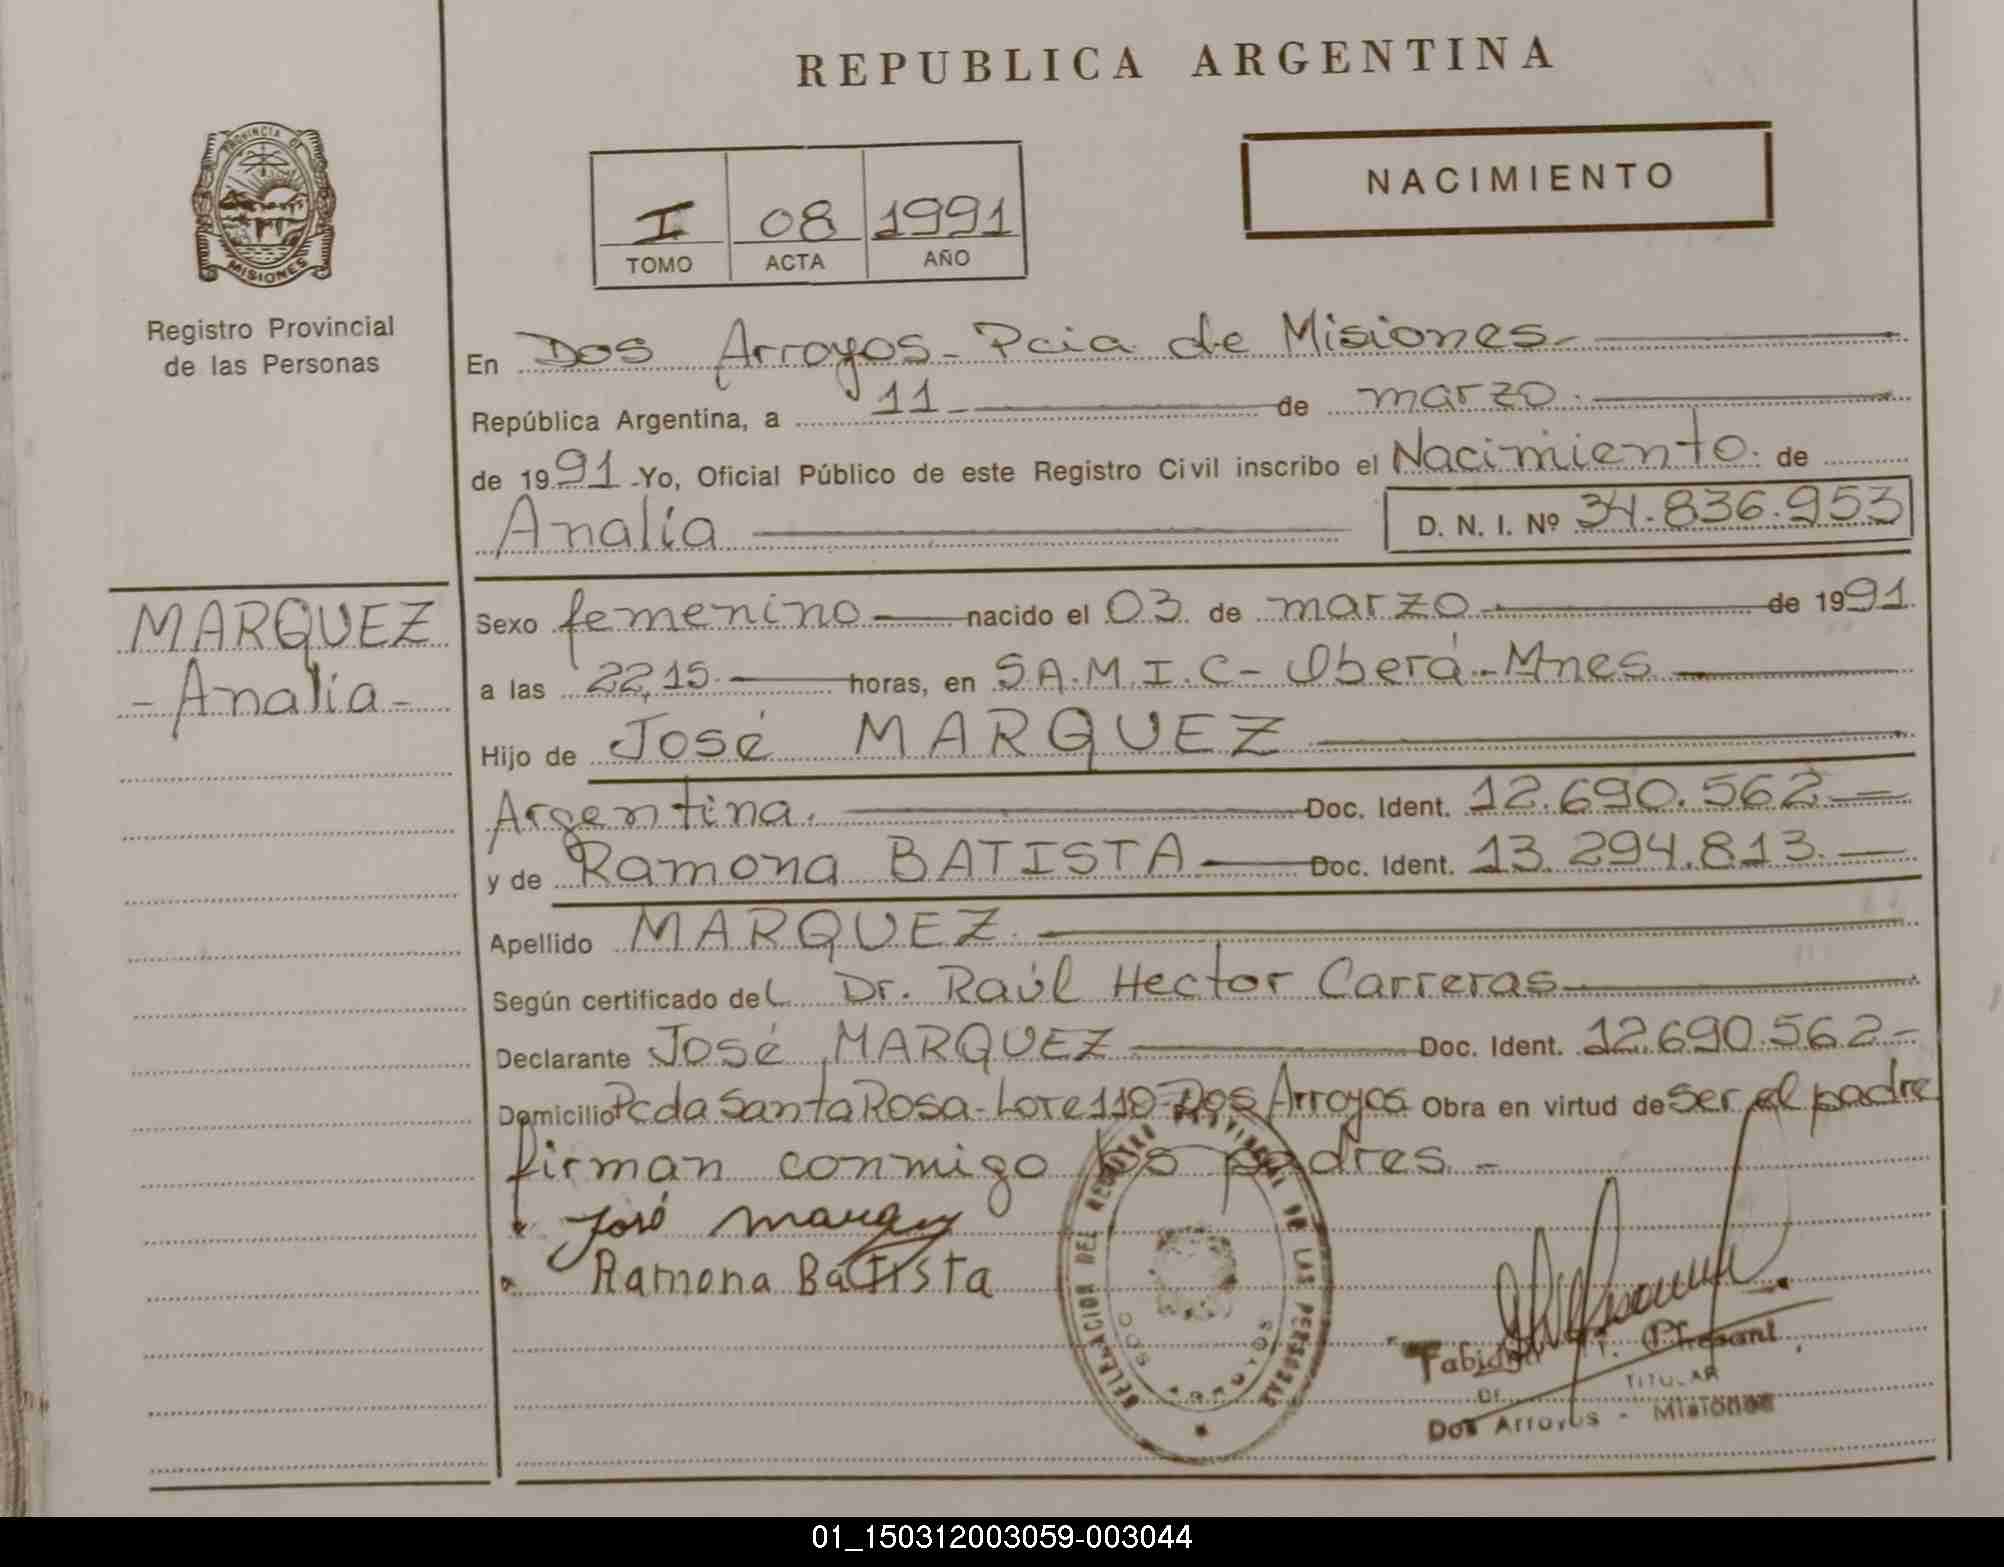 REPUBLICA ARGENTINA
PROVINCIA DE
MISIONES
Registro Provincial
de las Personas
I 08 1991
TOMO ACTA AÑO
NACIMIENTO
En Dos Arroyos - Pcia de Misiones.-
República Argentina, a 11 - de marzo.
de 1991 - Yo, Oficial Público de este Registro Civil inscribo el Nacimiento. de
Analía D. N. I. Nº 34.836.953
MARQUEZ
- Analía -
Sexo femenino nacido el 03 de marzo de 1991.
a las 22,15. horas, en S.A.M.I.C - Oberá - Mnes
Hijo de José MARQUEZ
Argentina. Doc. Ident. 12.690.562
y de Ramona BATISTA Doc. Ident. 13.294.813.
Apellido MARQUEZ.
Según certificado del Dr. Raúl Hector Carreras
Declarante José MARQUEZ Doc. Ident. 12.690.562-
Domicilio Pcda Santa Rosa - Lote 110 - Dos Arroyos Obra en virtud de ser el padre
firman conmigo los padres. -
José Marquez
Ramona Batista
DELEGACION DEL REGISTRO PROVINCIAL DE LAS PERSONAS
DOS ARROYOS
T. Phesant
TITULAR
Dos Arroyos - Misiones
01_150312003059-003044